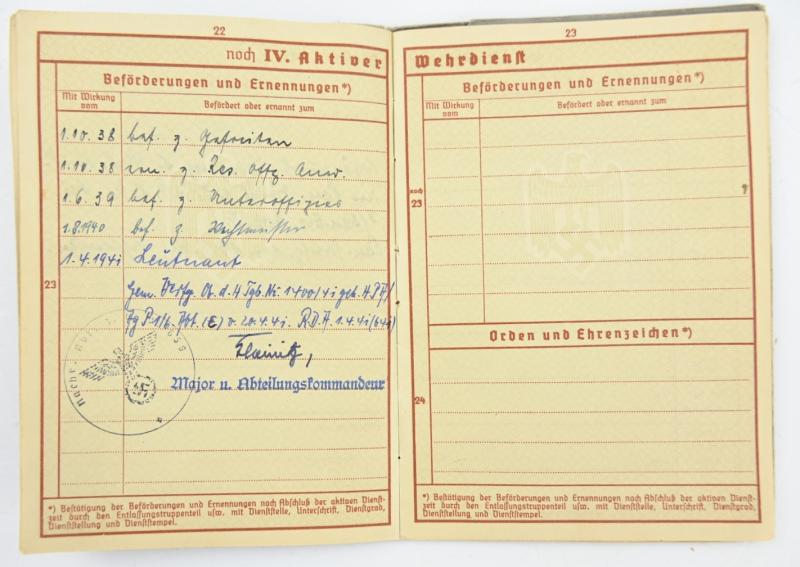 22
noch IV. Aktiver
Beförderungen und Ernennungen*)
Mit Wirkung vom
Befördert oder ernannt zum
1.10.38 bef. z. Gefreiten
1.10.38 ern. z. Res. Offz. Anw.
1.6.39 bef. z. Unteroffizier
1.8.1940 bef. z. Wachtmeister
1.4.1941 Leutnant
23
Gem. Verfg. Ob. d. H Tgb. Nr. 1400/41 geh. H PA/
Ag P1/6. Abt. (E) v. 20.4.41. RDA 1.4.41 (641)
Major u. Abteilungskommandeur
*) Bestätigung der Beförderungen und Ernennungen nach Abschluß der aktiven Dienst-
zeit durch den Entlassungstruppenteil usw. mit Dienststelle, Unterschrift, Dienstgrad,
Dienststellung und Dienststempel.
23
Wehrdienst
Beförderungen und Ernennungen*)
Mit Wirkung vom
Befördert oder ernannt zum
noch
23
Orden und Ehrenzeichen*)
24
*) Bestätigung der Beförderungen und Ernennungen nach Abschluß der aktiven Dienst-
zeit durch den Entlassungstruppenteil usw. mit Dienststelle, Unterschrift, Dienstgrad,
Dienststellung und Dienststempel.